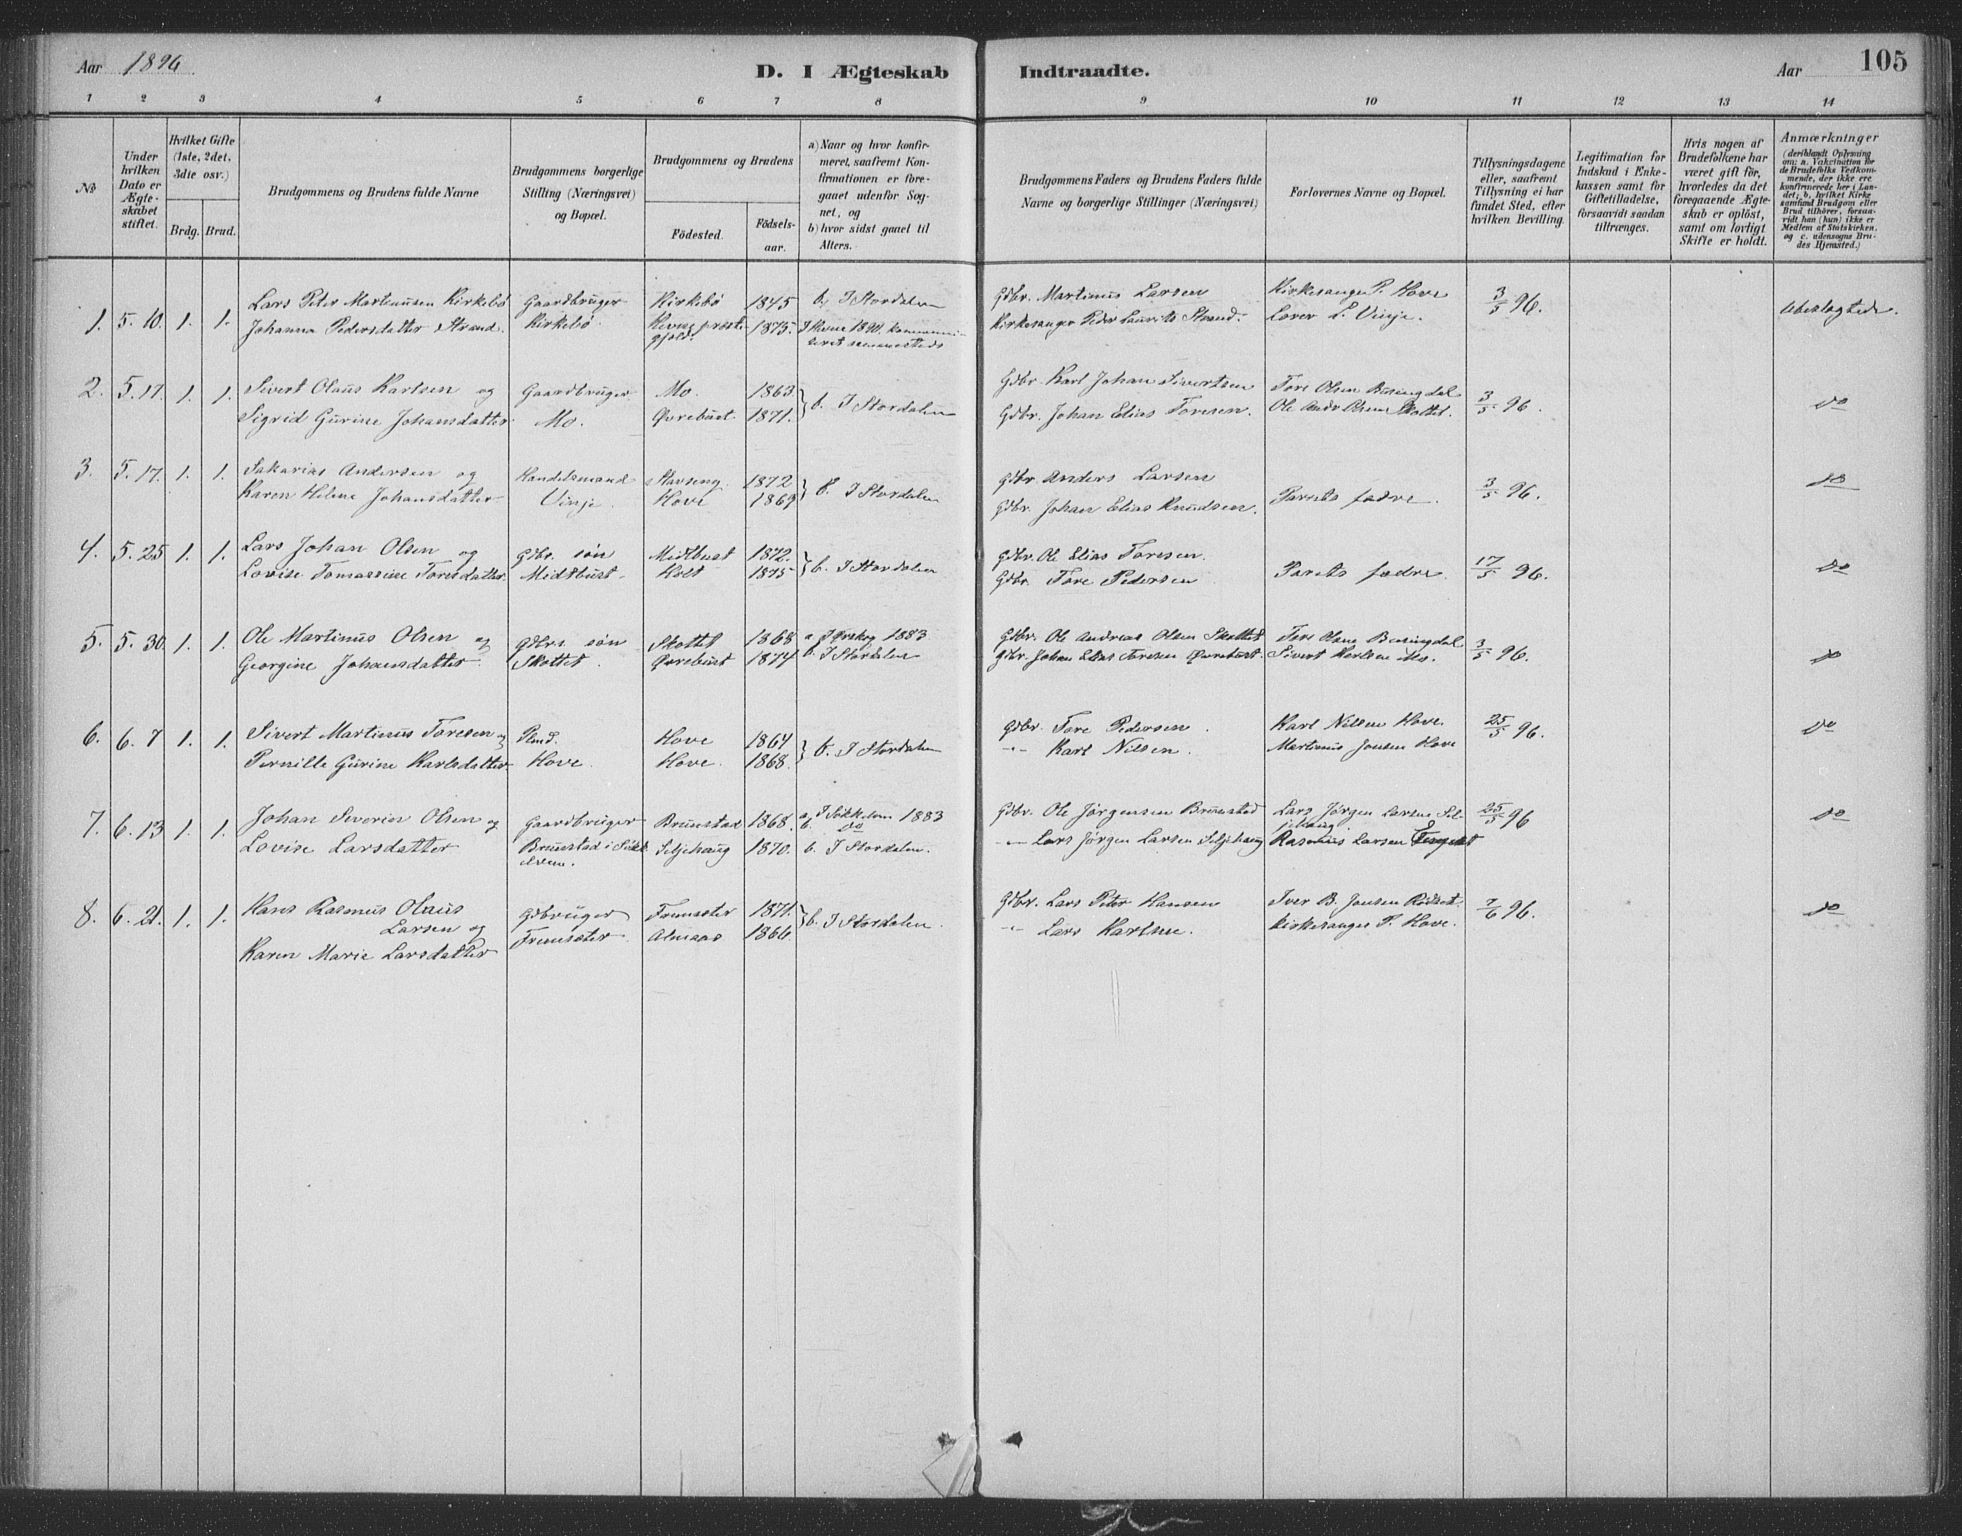 Aar 1896 D. I Ægteskab Indtraadte. Aar 105
1 2 3 4 5 6 7 8 9 10 11 12 13 14
No
Under hvilken Dato er Ægteskabet stiftet.
Hvilket Gifte (1ste, 2det, 3die osv.)
Brdg. Brud.
Brudgommens og Brudens fulde Navne
Brudgommens borgerlige Stilling (Næringsvei) og Bopæl.
Brudgommens og Brudens
Fødested. Fødselsaar.
a) Naar og hvor konfirmeret, saafremt Konfirmationen er foregaaet udenfor Sognet, og
b) hvor sidst gaaet til Alters.
Brudgommens Faders og Brudens Faders fulde Navne og borgerlige Stillinger (Næringsvei)
Forlovernes Navne og Bopæl.
Tillysningsdagene eller, saafremt Tillysning ei har fundet Sted, efter hvilken Bevilling.
Legitimation for Indskud i Enkekassen samt for Giftetilladelse, forsaavidt saadan tiltrænges.
Hvis nogen af Brudefolkene har været gift før, hvorledes da det foregaaende Ægteskab er opløst, samt om lovligt Skifte er holdt.
Anmærkninger
(deriblandt Oplysning om: a. Vakcination for de Brudefolks Vedkommende, der ikke ere konfirmerede her i Landet; b. hvilket Kirkesamfund Brudgom eller Brud tilhører, forsaavidt han (hun) ikke er Medlem af Statskirken, og c. udensogns Brudes Hjemsted.)
1. 5. 10. 1. 1. Lars Peter Martinusen Kirkebø Gaardbruger Kirkebø 1845 b. I Stordalen Gdbr. Martinus Larsen Kirkesanger P. Hove 3/5 96. Ubeslægtede.
Johanna Pedersdatter Strand. Kirkebø. præstegjeld. 1875. 1890. Kirkesanger Peder Laurits Strand. L. Vinje.
2. 5. 17. 1. 1. Sivert Olaus Karlsen og Gaardbruger Mo. 1863 b. I Stordalen Gdbr. Karl Johan Sivertsen Tore Olsen Busengdal 3/5 96. do
Sigrid Gurine Johansdatter. Mo. Øvrebust. 1871. Gdbr. Johan Elias Toresen. Ole Andr. Olsen Skottet.
3. 5. 17. 1. 1. Sakarias Andersen og Handelsmand Stavseng. 1872 b. I Stordalen Gdbr. Anders Larsen 3/5 96. do
Karen Heline Johansdatter Vinje. Hove 1869 Gdbr. Johan Elias Knudsen. Parrets fædre.
4. 5. 25 1. 1. Lars Johan Olsen og Gdbr. søn Midtbust 1872. b. I Stordalen Gdbr. Ole Elias Toresen. 17/5 96. do
Lovise Tomassine Toresdatter. Midtbust. Holt 1875 Gdbr. Tore Pedersen Parrets fædre.
5. 5. 30. 1. 1. Ole Martinus Olsen og Gdbrs. søn Skottet 1868 a. I Ørskog 1883 Gdbr. Ole Andreas Olsen Skottet Tore Olsen Busengdal 3/5 96. do
Georgine Johansdatter. Skottet. Øvrebust 1874 b. I Stordalen Gdbr. Johan Elias Toresen Øvrebust. Sivert Karlsen Mo.
6. 6. 7 1. 1. Sivert Martinus Toresen og Hove 1864 b. I Stordalen Gdbr. Tore Pedersen. Karl Nilsen Hove 25/5 96. do
Pernille Gurine Karlsdatter Hove. Hove. 1868. -"- Karl Nilsen. Martinus Jonsen Hove
7. 6. 13 1. 1. Johan Severin Olsen og Gaardbruger Brunstad 1868. a. I Søkkelven 1883 Gdbr. Ole Jørgensen Brunstad Lars Jørgen Larsen Siljehaug 25/5 96 do
b. do
Lovise Larsdatter Brunstad i Søkkelven. Siljehaug 1870. b. I Stordalen. -"- Lars Jørgen Larsen Siljehaug Rasmus Larsen
8. 6. 21. 1. 1. Hans Rasmus Olaus Gdbruger Fremsæter 1871. b. I Stordalen. Gdbr. Lars Peter Hansen Iver B. Jonsen Rødset. 7/6 96. do
Larsen og Fremsæter. Almaas 1866 -"- Lars Karlsen. Kirkesanger P. Hove.
Karen Marie Larsdatter